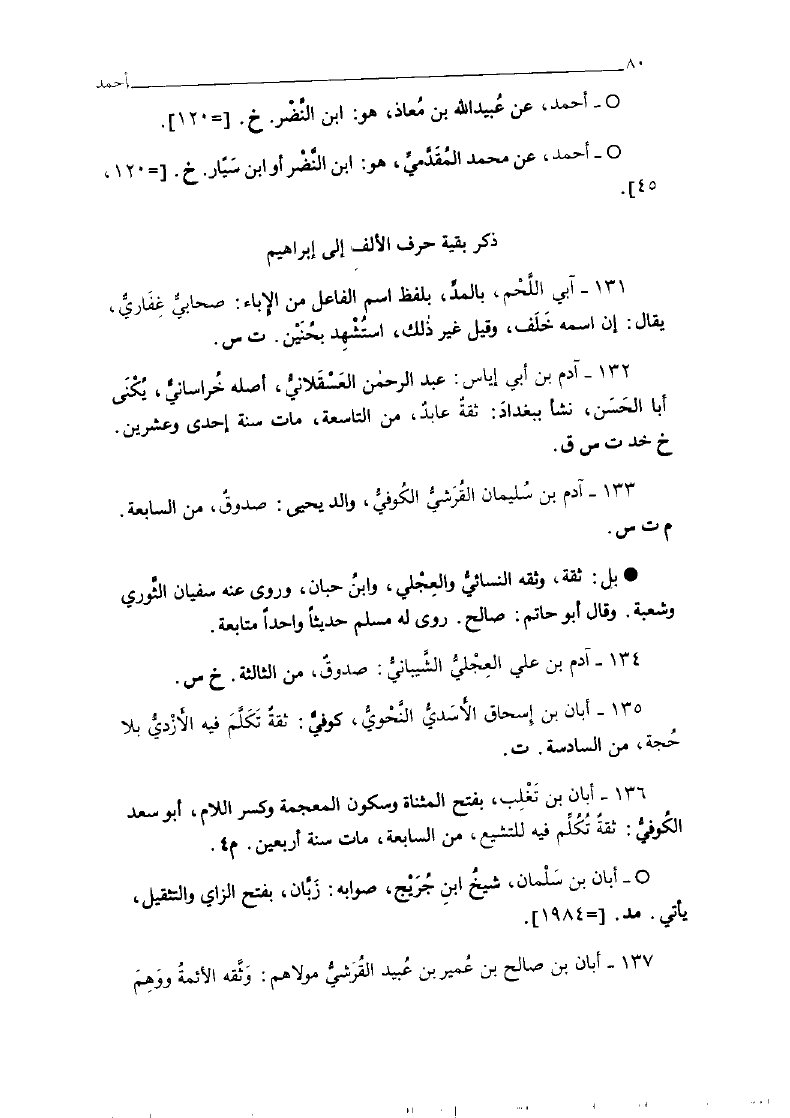 ٨٠ أحمد
○ ـ أحمد، عن عُبيدالله بن مُعاذ، هو: ابن النَّضْر. خ. [=١٢٠].
○ ـ أحمد، عن محمد المُقَدَّميِّ، هو: ابن النَّضْر أو ابن سَيَّار. خ. [=١٢٠،
٤٥].
ذكر بقية حرف الألف إلى إبراهيم
١٣١ ـ آبي اللَّحْم، بالمدِّ، بلفظ اسم الفاعل من الإِباء: صحابيٌّ غِفَاريٌّ،
يقال: إن اسمه خَلَف، وقيل غير ذٰلك، استُشْهِد بحُنَيْن. ت س.
١٣٢ ـ آدم بن أبي إياس: عبد الرحمٰن العَسْقلانيُّ، أصله خُراسانيٌّ، يُكْنَى
أبا الحَسَن، نشأ ببغدادَ: ثقةٌ عابدٌ، من التاسعة، مات سنة إحدى وعشرين.
خ خد ت س ق.
١٣٣ ـ آدم بن سُليمان القُرَشيُّ الكُوفيُّ، والد يحيى: صدوقٌ، من السابعة.
م ت س.
● بل: ثقة، وثقه النسائيُّ والعِجْلي، وابنُ حبان، وروى عنه سفيان الثَّوري
وشعبة. وقال أبو حاتم: صالح. روى له مسلم حديثاً واحداً متابعة.
١٣٤ ـ آدم بن علي العِجْليُّ الشَّيبانيُّ: صدوقٌ، من الثالثة. خ س.
١٣٥ ـ أبان بن إسحاق الأَسَديُّ النَّحْويُّ، كوفيٌّ: ثقةٌ تَكَلَّمَ فيه الأَزْديُّ بلا
حُجة، من السادسة. ت.
١٣٦ ـ أبان بن تَغْلِب، بفتح المثناة وسكون المعجمة وكسر اللام، أبو سعد
الكُوفيُّ: ثقةٌ تُكُلِّم فيه للتشيع، من السابعة، مات سنة أربعين. م٤.
○ ـ أبان بن سَلْمان، شيخُ ابنِ جُرَيْج، صوابه: زَبَّان، بفتح الزاي والتثقيل،
يأتي. مد. [=١٩٨٤].
١٣٧ ـ أبان بن صالح بن عُمير بن عُبيد القُرَشيُّ مولاهم: وَثَّقه الأئمةُ ووَهِمَ